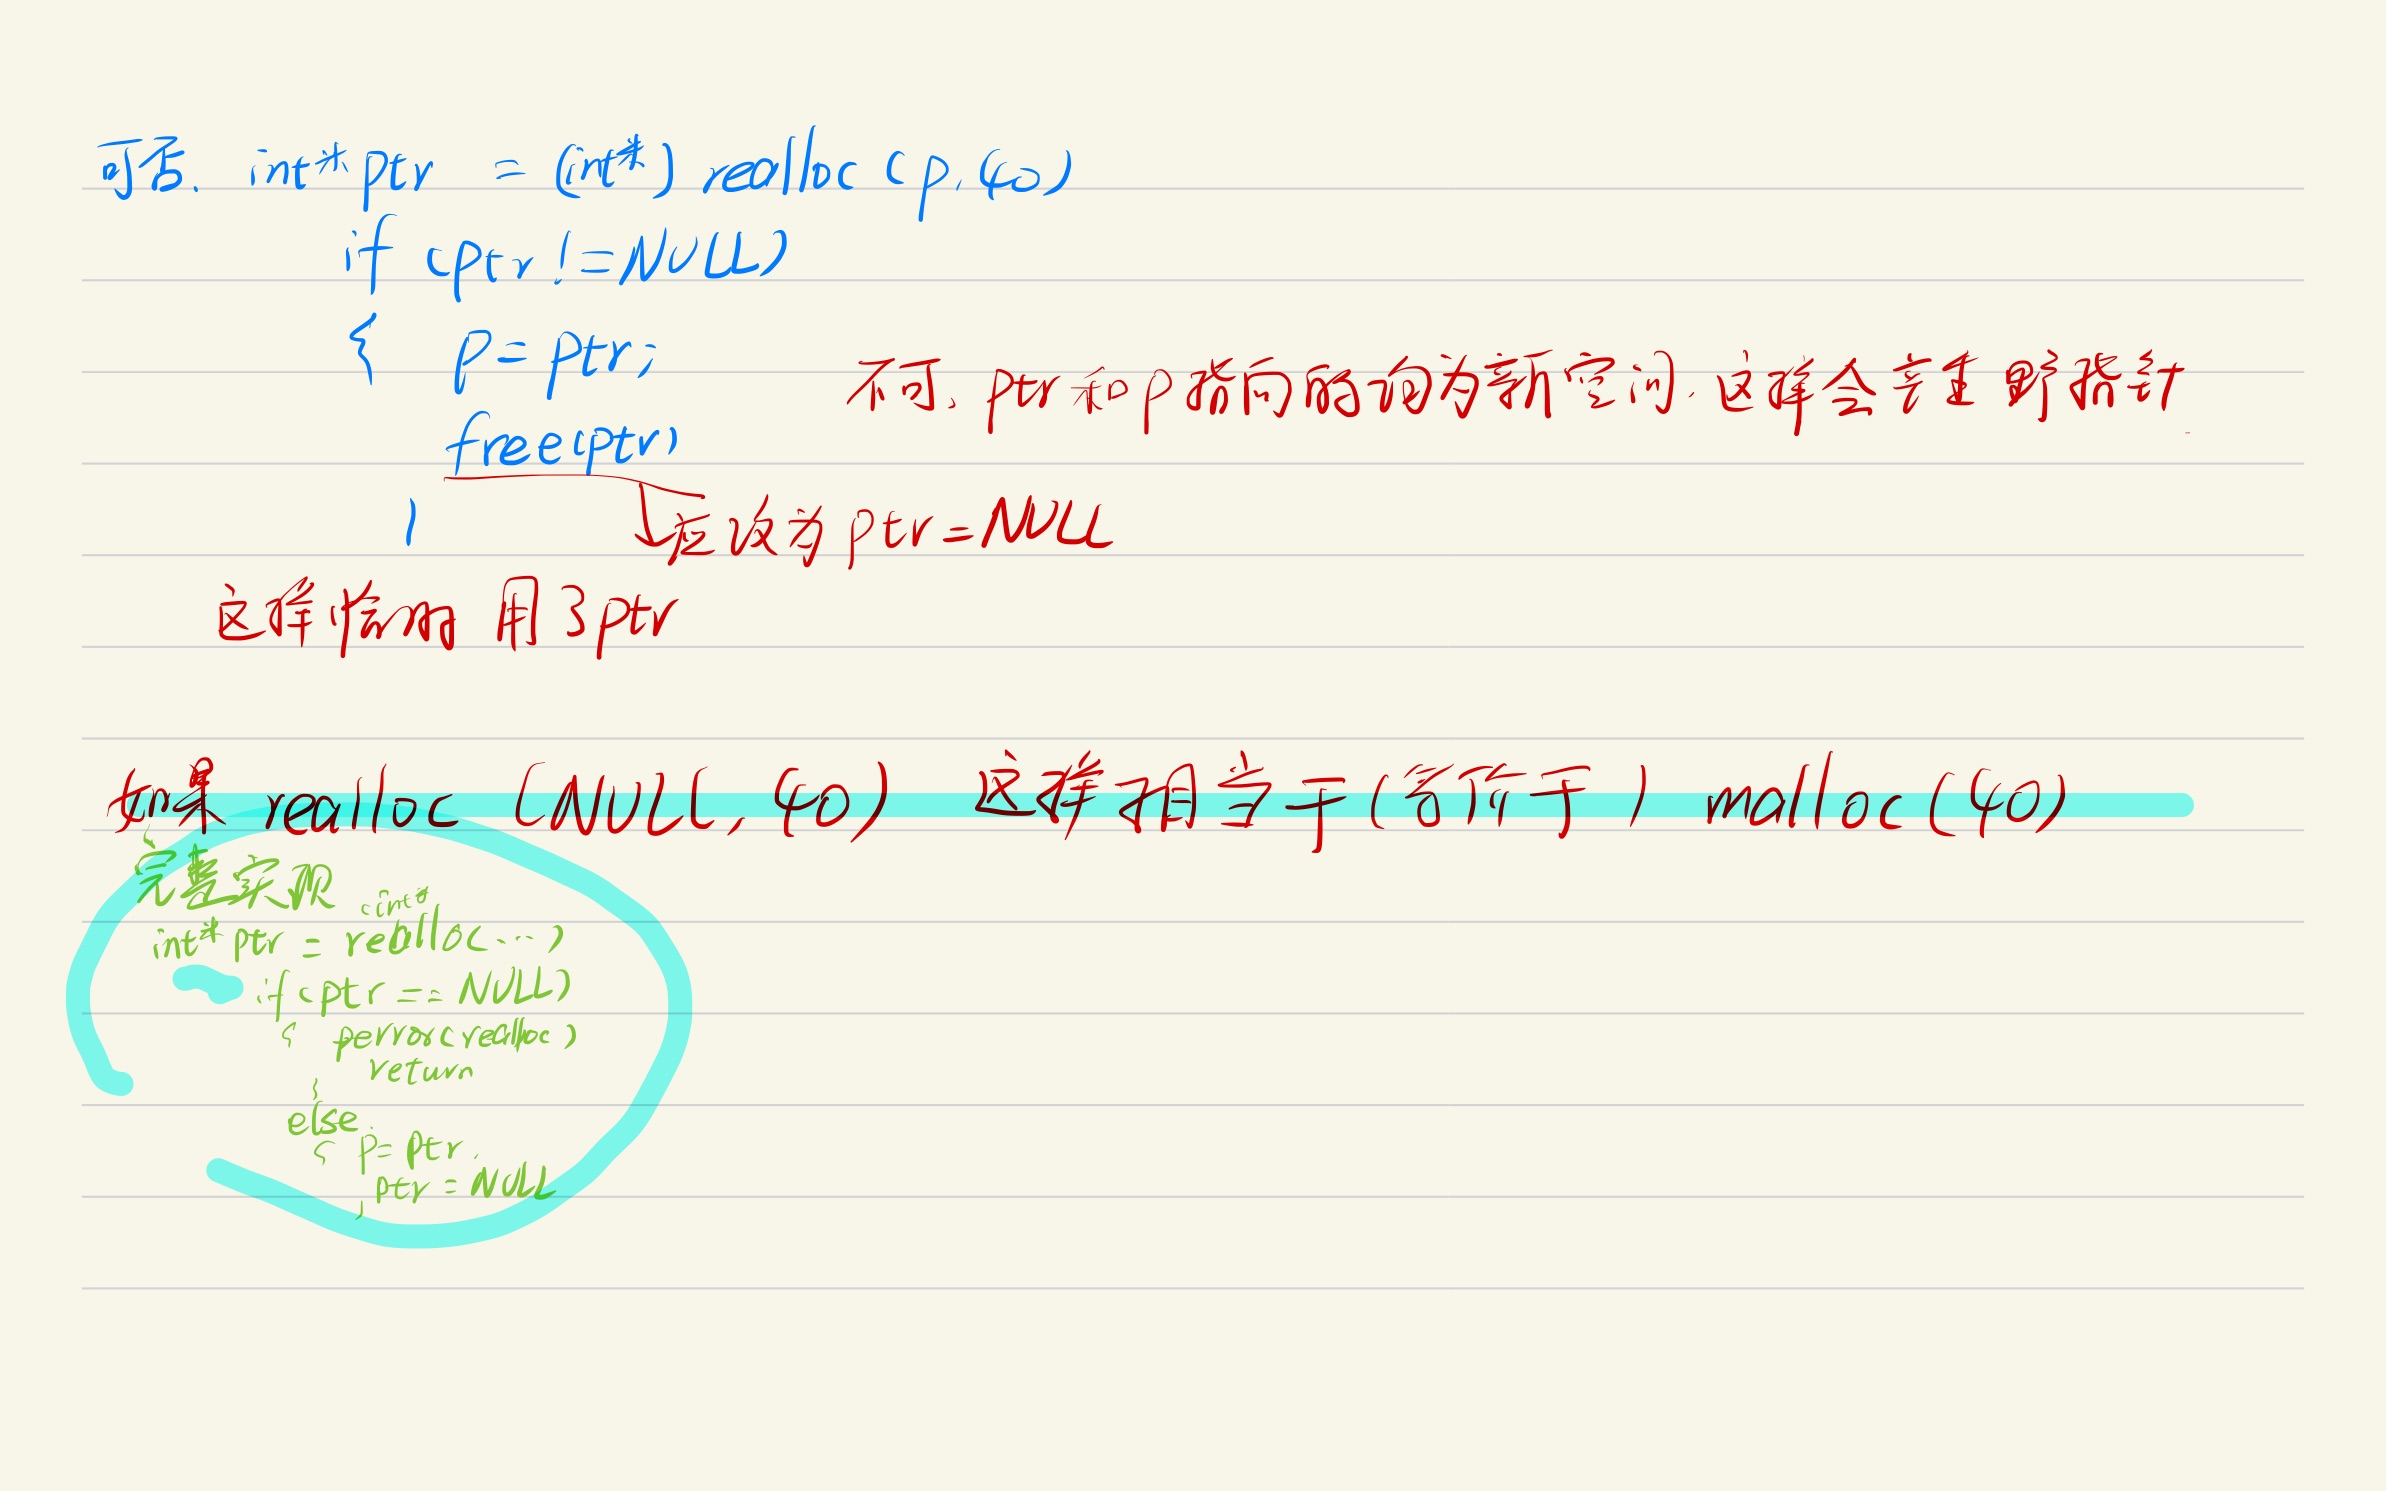 可否. int* ptr = (int*) realloc (p, 40)
if (ptr != NULL)
{ p = ptr;
不可, ptr 和 p 指向的均为新空间. 这样会产生野指针
free(ptr)
}
应改为 ptr = NULL
这样恰好 用了ptr
如果 realloc (NULL, 40) 这样相当于(等价于) malloc (40)
完整实现
(int*
int* ptr = realloc(...)
if (ptr == NULL)
{ perror(realloc)
return
}
else
{ p = ptr.
ptr = NULL
}